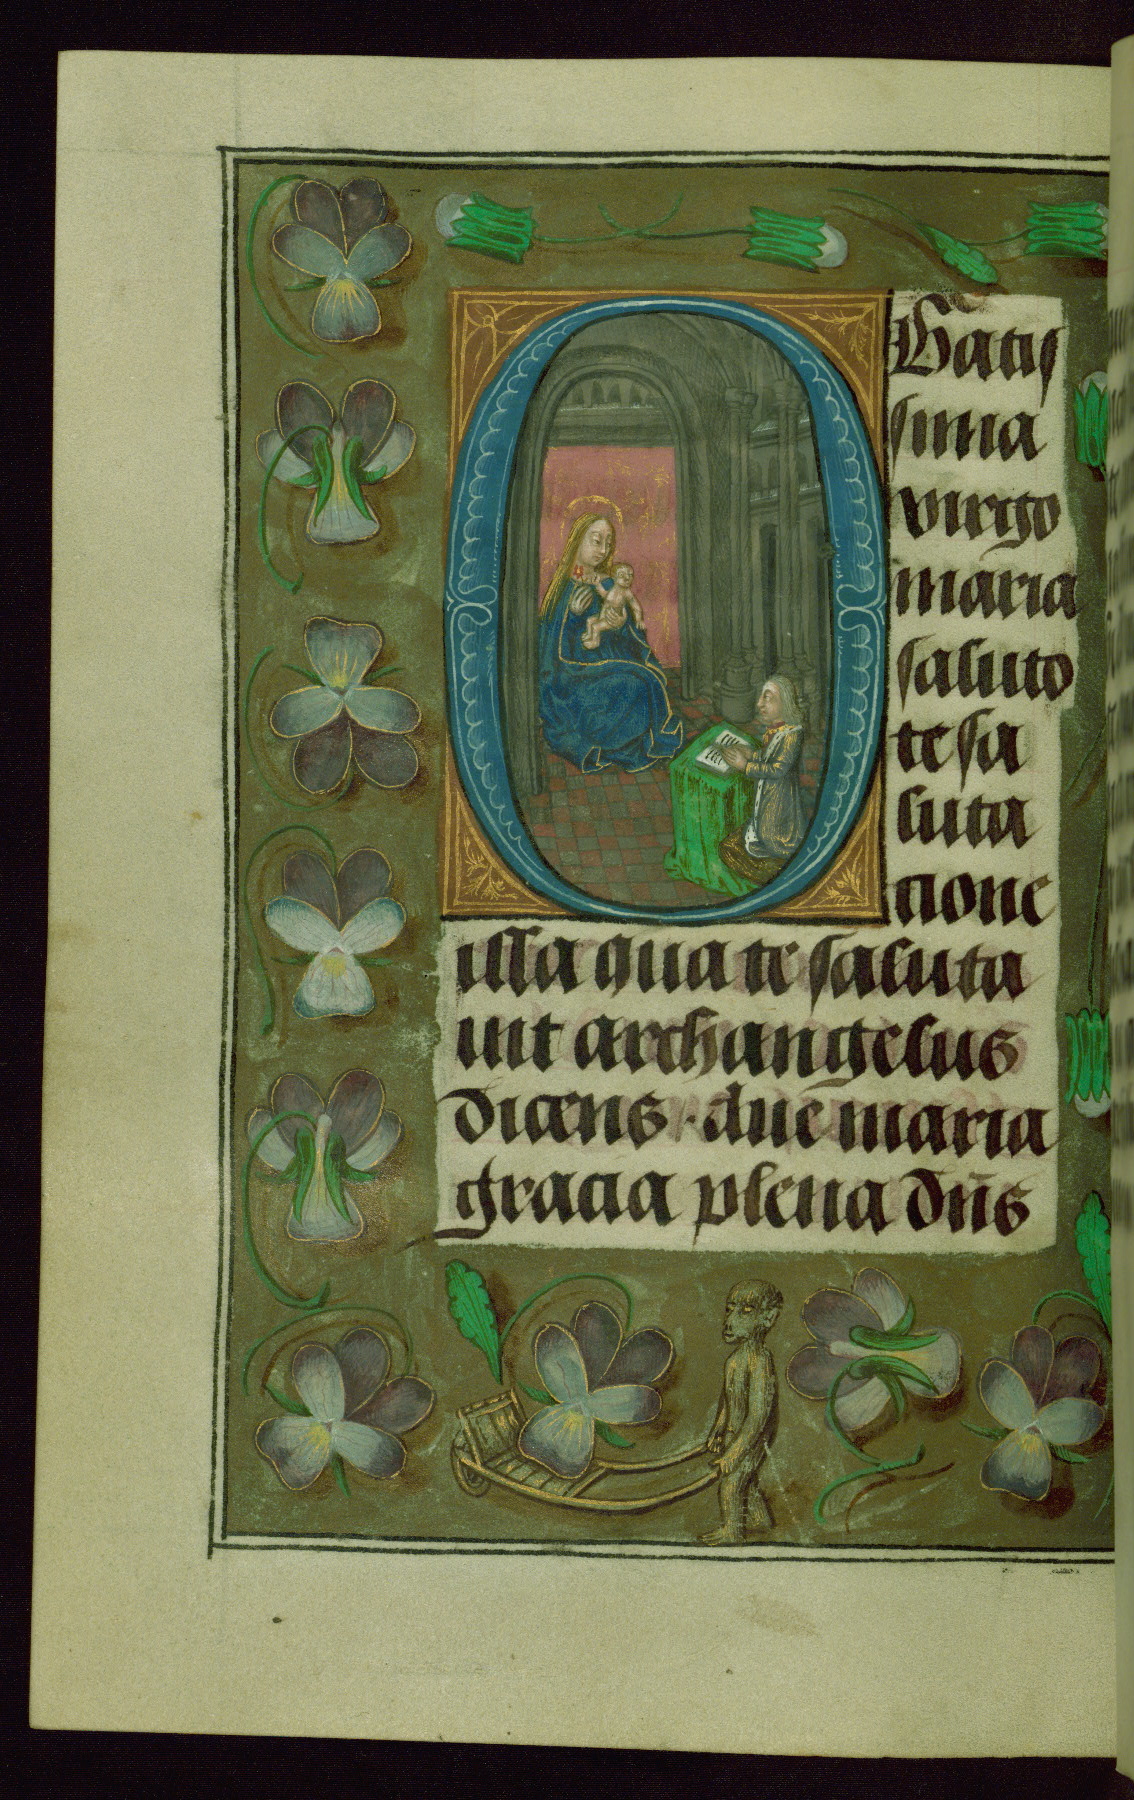 O
Gratis
sima
virgo
maria
saluto
te sa
luta
tione
illa qua te saluta
uit archangelus
dicens · Aue maria
gracia plena dns̄